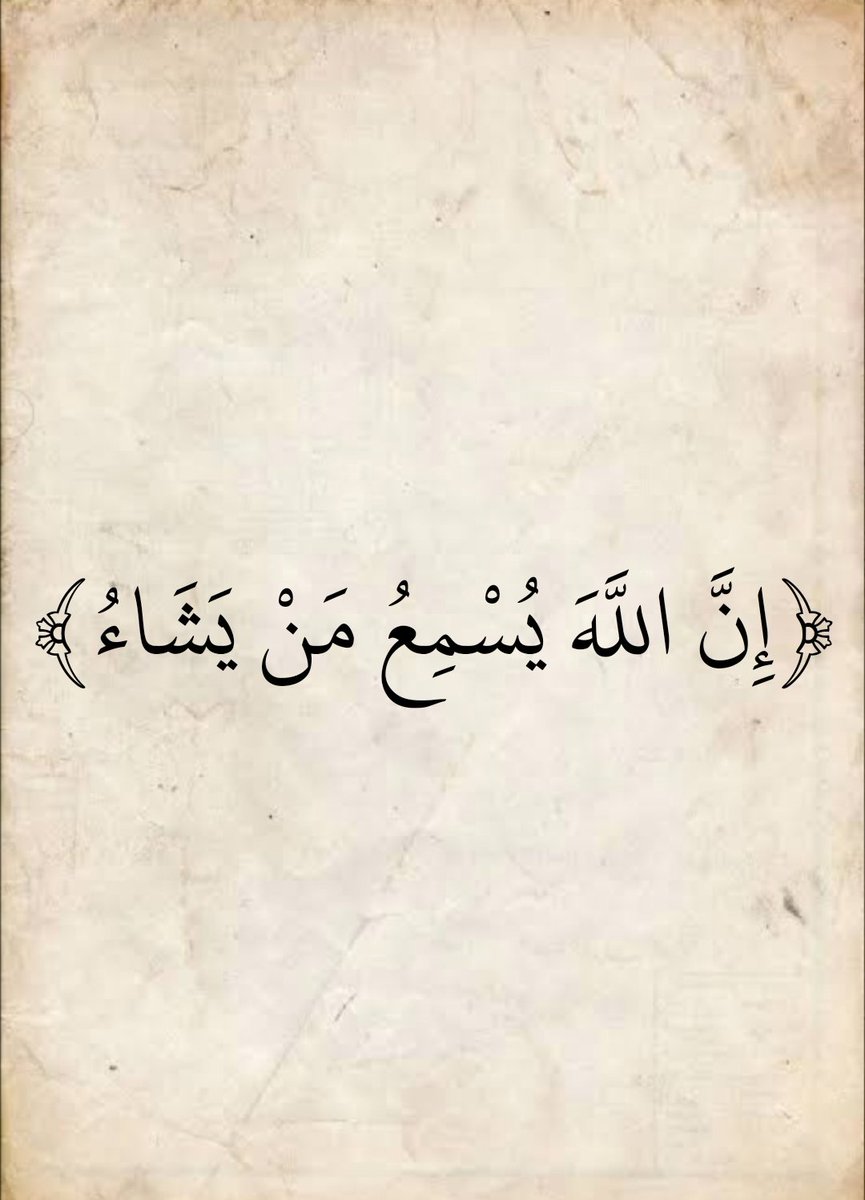 ﴿إِنَّ اللَّهَ يُسْمِعُ مَنْ يَشَاءُ﴾